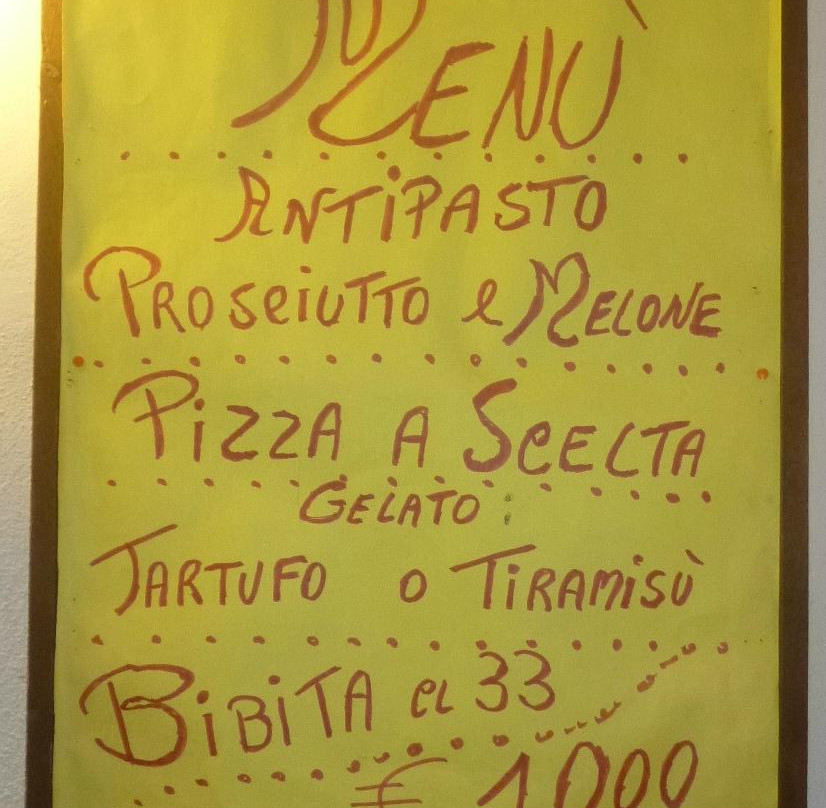 MENÙ
ANTIPASTO
PROSCIUTTO e MELONE
PIZZA A SCELTA
GELATO:
TARTUFO o TIRAMISÙ
BIBITA cl 33
£ 1000